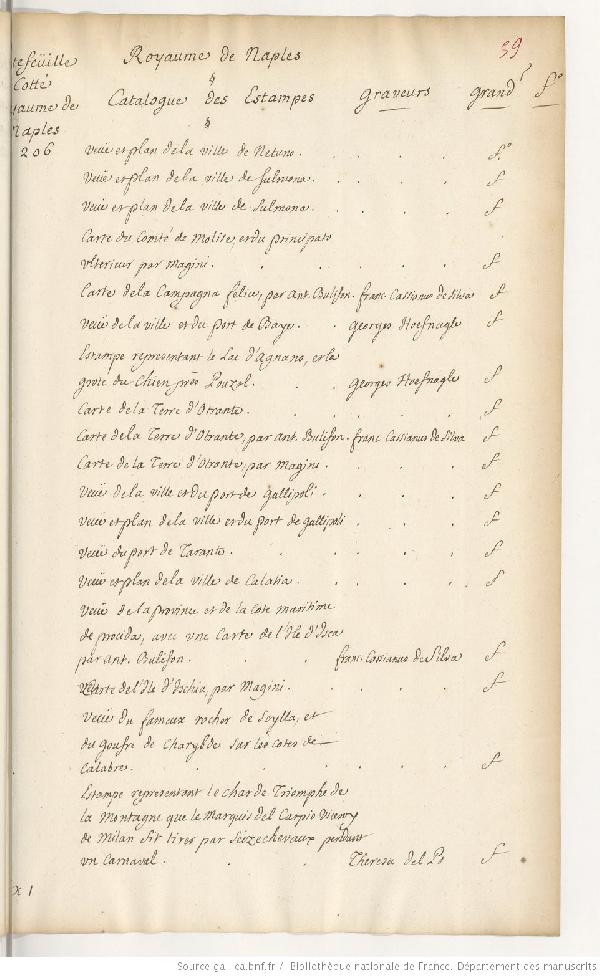 Royaume de Naples
39
tefeüille
Cotté
yaume de
Naples
206
§
Catalogue des Estampes
Graveurs
grand.r
f.o
§
Veüe et plan de la ville de Netuno. f.o
Veüe et plan de la ville de Sulmona. f
Veüe et plan de la ville de Sulmona. f
Carte du Comté de Molise, et du principato
Ulterieur par Magini. f
Carte de la Campagna felice, par Ant. Bulifon. franc. Cassianus de Silva f
Veüe de la ville et du port de Baye. Georges Hoefnagle f
Estampe representant le Lac d'Agnano, et la
grote du Chien près Pouzol. Georges Hoefnagle f
Carte de la Terre d'Otrante. f
Carte de la Terre d'Otrante, par Ant. Bulifon. franc. Cassianus de Silva f
Carte de la Terre d'Otrante, par Magini. f
Veüe de la ville et du port de Gallipoli. f
Veüe et plan de la ville et du port de Gallipoli. f
Veüe du port de Tarante. f
Veüe et plan de la ville de Calatia. f
Veüe de la province et de la cote maritime
de procida, avec une Carte de l'Isle d'Isca
par Ant. Bulifon. franc. Cassianus de Silva f
Carte de l'Isle d'Ischia, par Magini. f
Veüe du fameux rocher de Scylla, et
du goufre de Charybde sur les cotes de
Calabre. f
Estampe representant le char de Triomphe de
la Montagne que le Marquis del Carpio Viceroy
de Milan fit tirer par seize chevaux pendant
un Carnaval. Theresa del Po f
x 1
Source gallica.bnf.fr / Bibliothèque nationale de France. Département des manuscrits